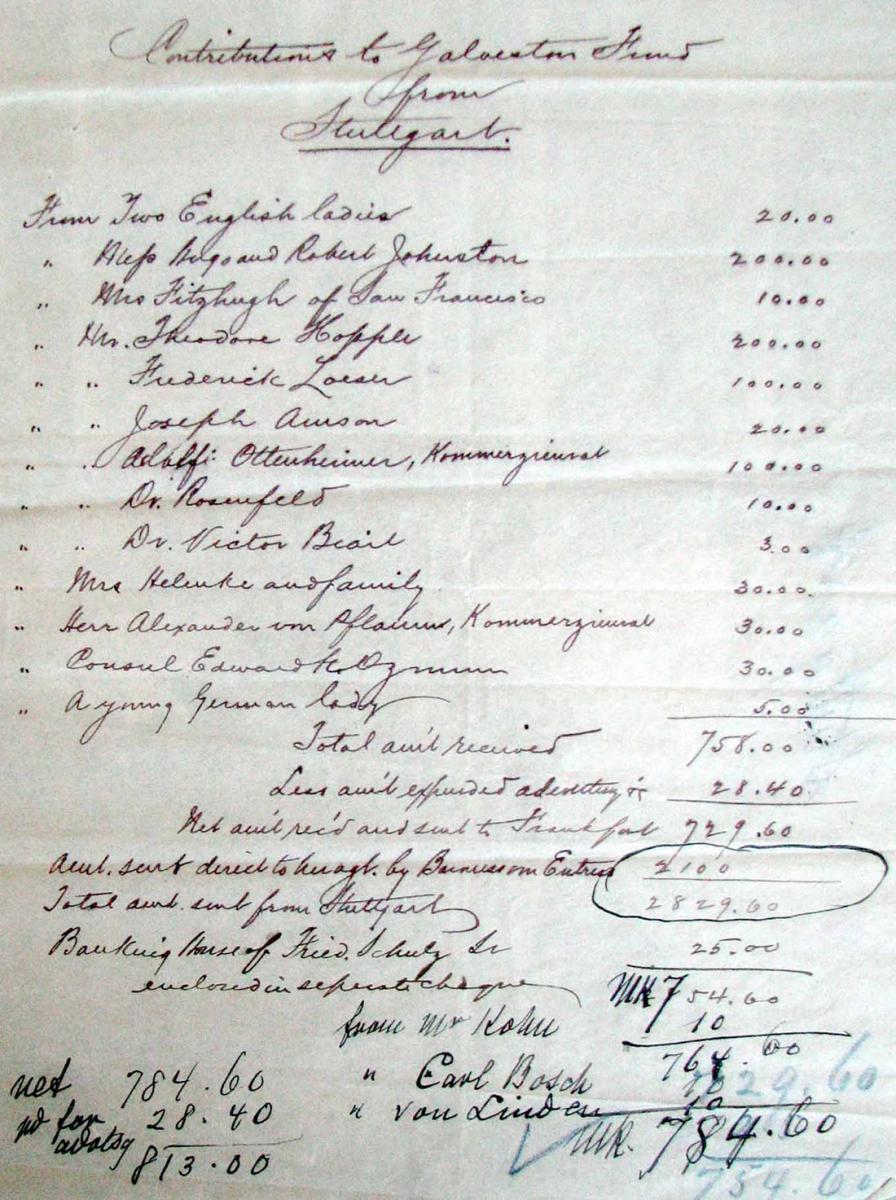 Contributions to Galveston Fund
from
Stuttgart.
From Two English ladies 20.00
" Hugo and Robert Johnston 200.00
" Mrs Fitzhugh of San Francisco 10.00
" Mr. Theodore Hopple 200.00
" " Frederick Loeser 100.00
" " Joseph 20.00
" " Ottenheimer, Kommerzienrat 100.00
" " Dr. Rosenfeld 10.00
" " Dr. Victor 3.00
" Mrs Helenke and family 30.00
" Herr Alexander von Pflaum, Kommerzienrat 30.00
" Consul Edward H. Ozmun 30.00
" A young German lady 5.00
Total am't received 758.00
Less am't expended 28.40
Net am't rec'd and sent to Frankfort 729.60
Amt. sent direct to by 2100
Total amt. sent from Stuttgart 2829.60
Banking House of Fried. Schulz Sr 25.00
enclosed in seperate cheque Mk 754.60
from Mr Kohn 10
764.60
" Carl Bosch 10
" von Linden 10
Mk. 784.60
net 784.60
pd for 28.40
advtsg
813.00
29.60
754.60